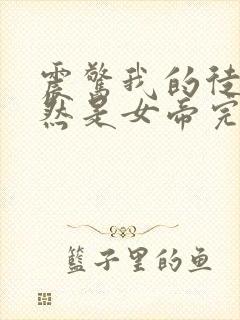 震惊我的徒
然是女帝完
篮子里的鱼